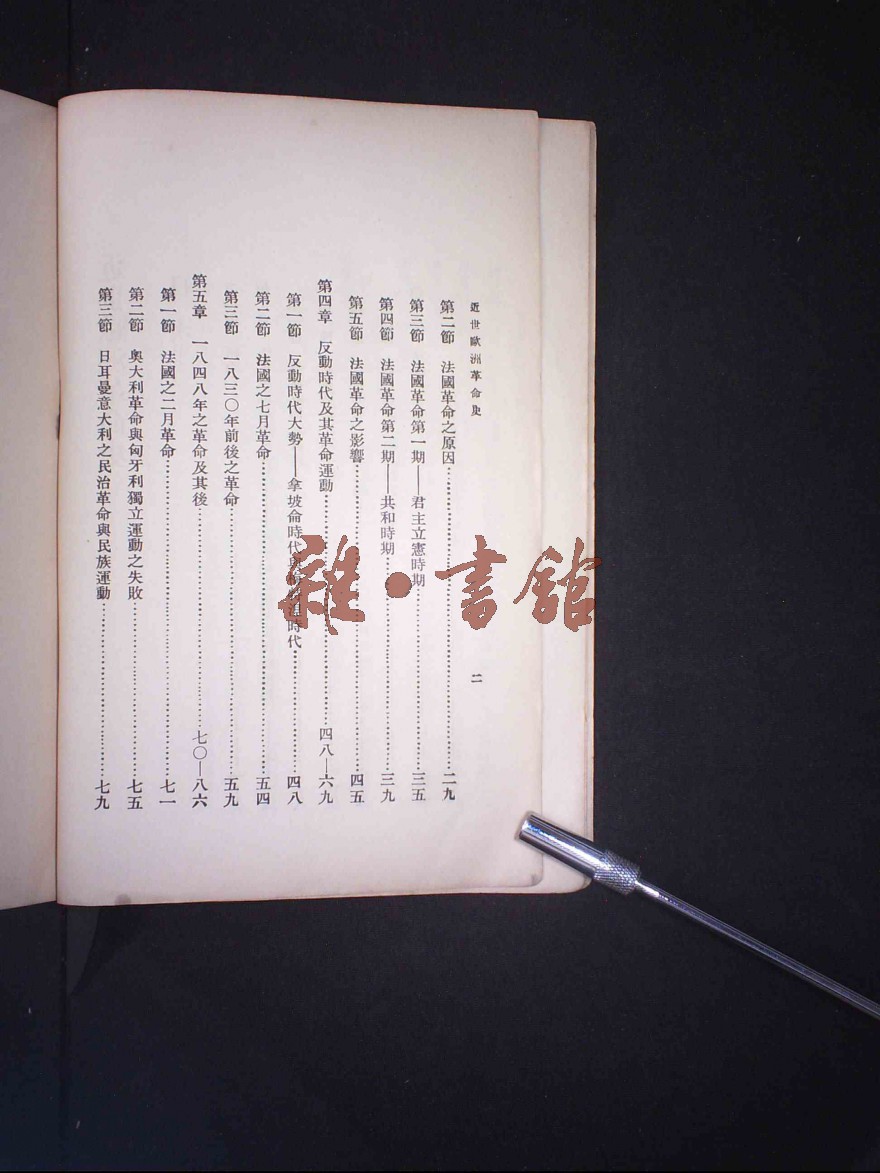 近世歐洲革命史
二
第二節 法國革命之原因……二九
第三節 法國革命第一期——君主立憲時期……三五
第四節 法國革命第二期——共和時期……三九
第五節 法國革命之影響……四五
第四章 反動時代及其革命運動……四八—六九
第一節 反動時代大勢——拿坡侖時代與……時代……四八
第二節 法國之七月革命……五四
第三節 一八三〇年前後之革命……五九
第五章 一八四八年之革命及其後……七〇—八六
第一節 法國之二月革命……七一
第二節 奧大利革命與匈牙利獨立運動之失敗……七五
第三節 日耳曼意大利之民治革命與民族運動……七九
雜·書館